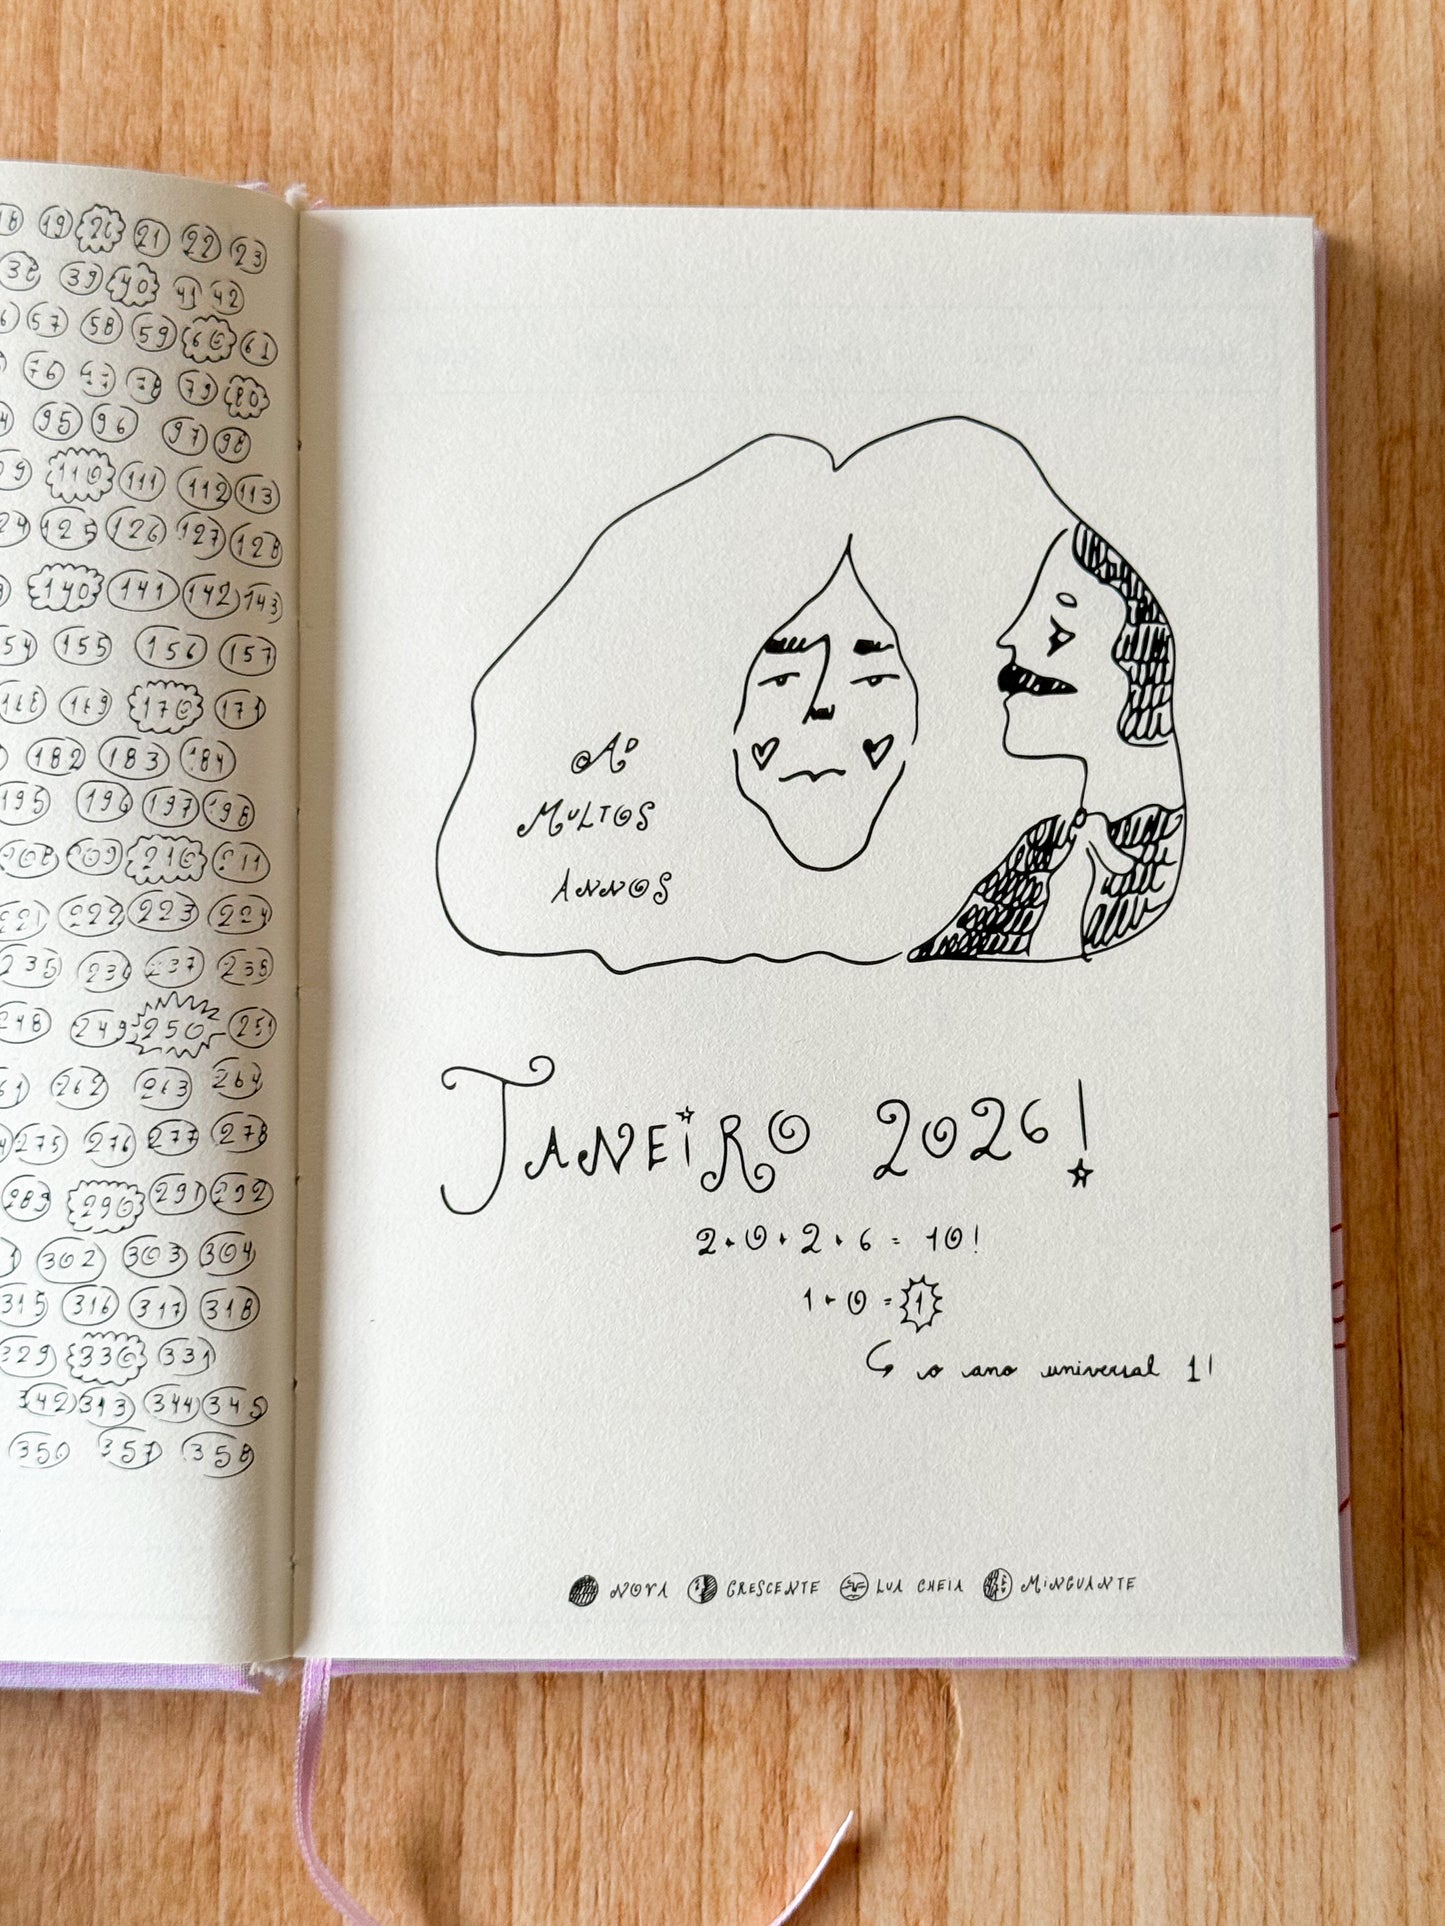 18 19 20 21 22 23
38 39 40 41 42
57 58 59 60 61
76 77 78 79 80
95 96 97 98
110 111 112 113
124 125 126 127 128
140 141 142 143
154 155 156 157
168 169 170 171
182 183 184
195 196 197 198
208 209 210 211
221 222 223 224
235 236 237 238
248 249 250 251
261 262 263 264
275 276 277 278
289 290 291 292
302 303 304
315 316 317 318
329 330 331
342 343 344 345
356 357 358
AD
MULTOS
ANNOS
JANEIRO 2026!
2+0+2+6=10!
1+0=1
o ano universal 1!
NOVA CRESCENTE LUA CHEIA MINGUANTE